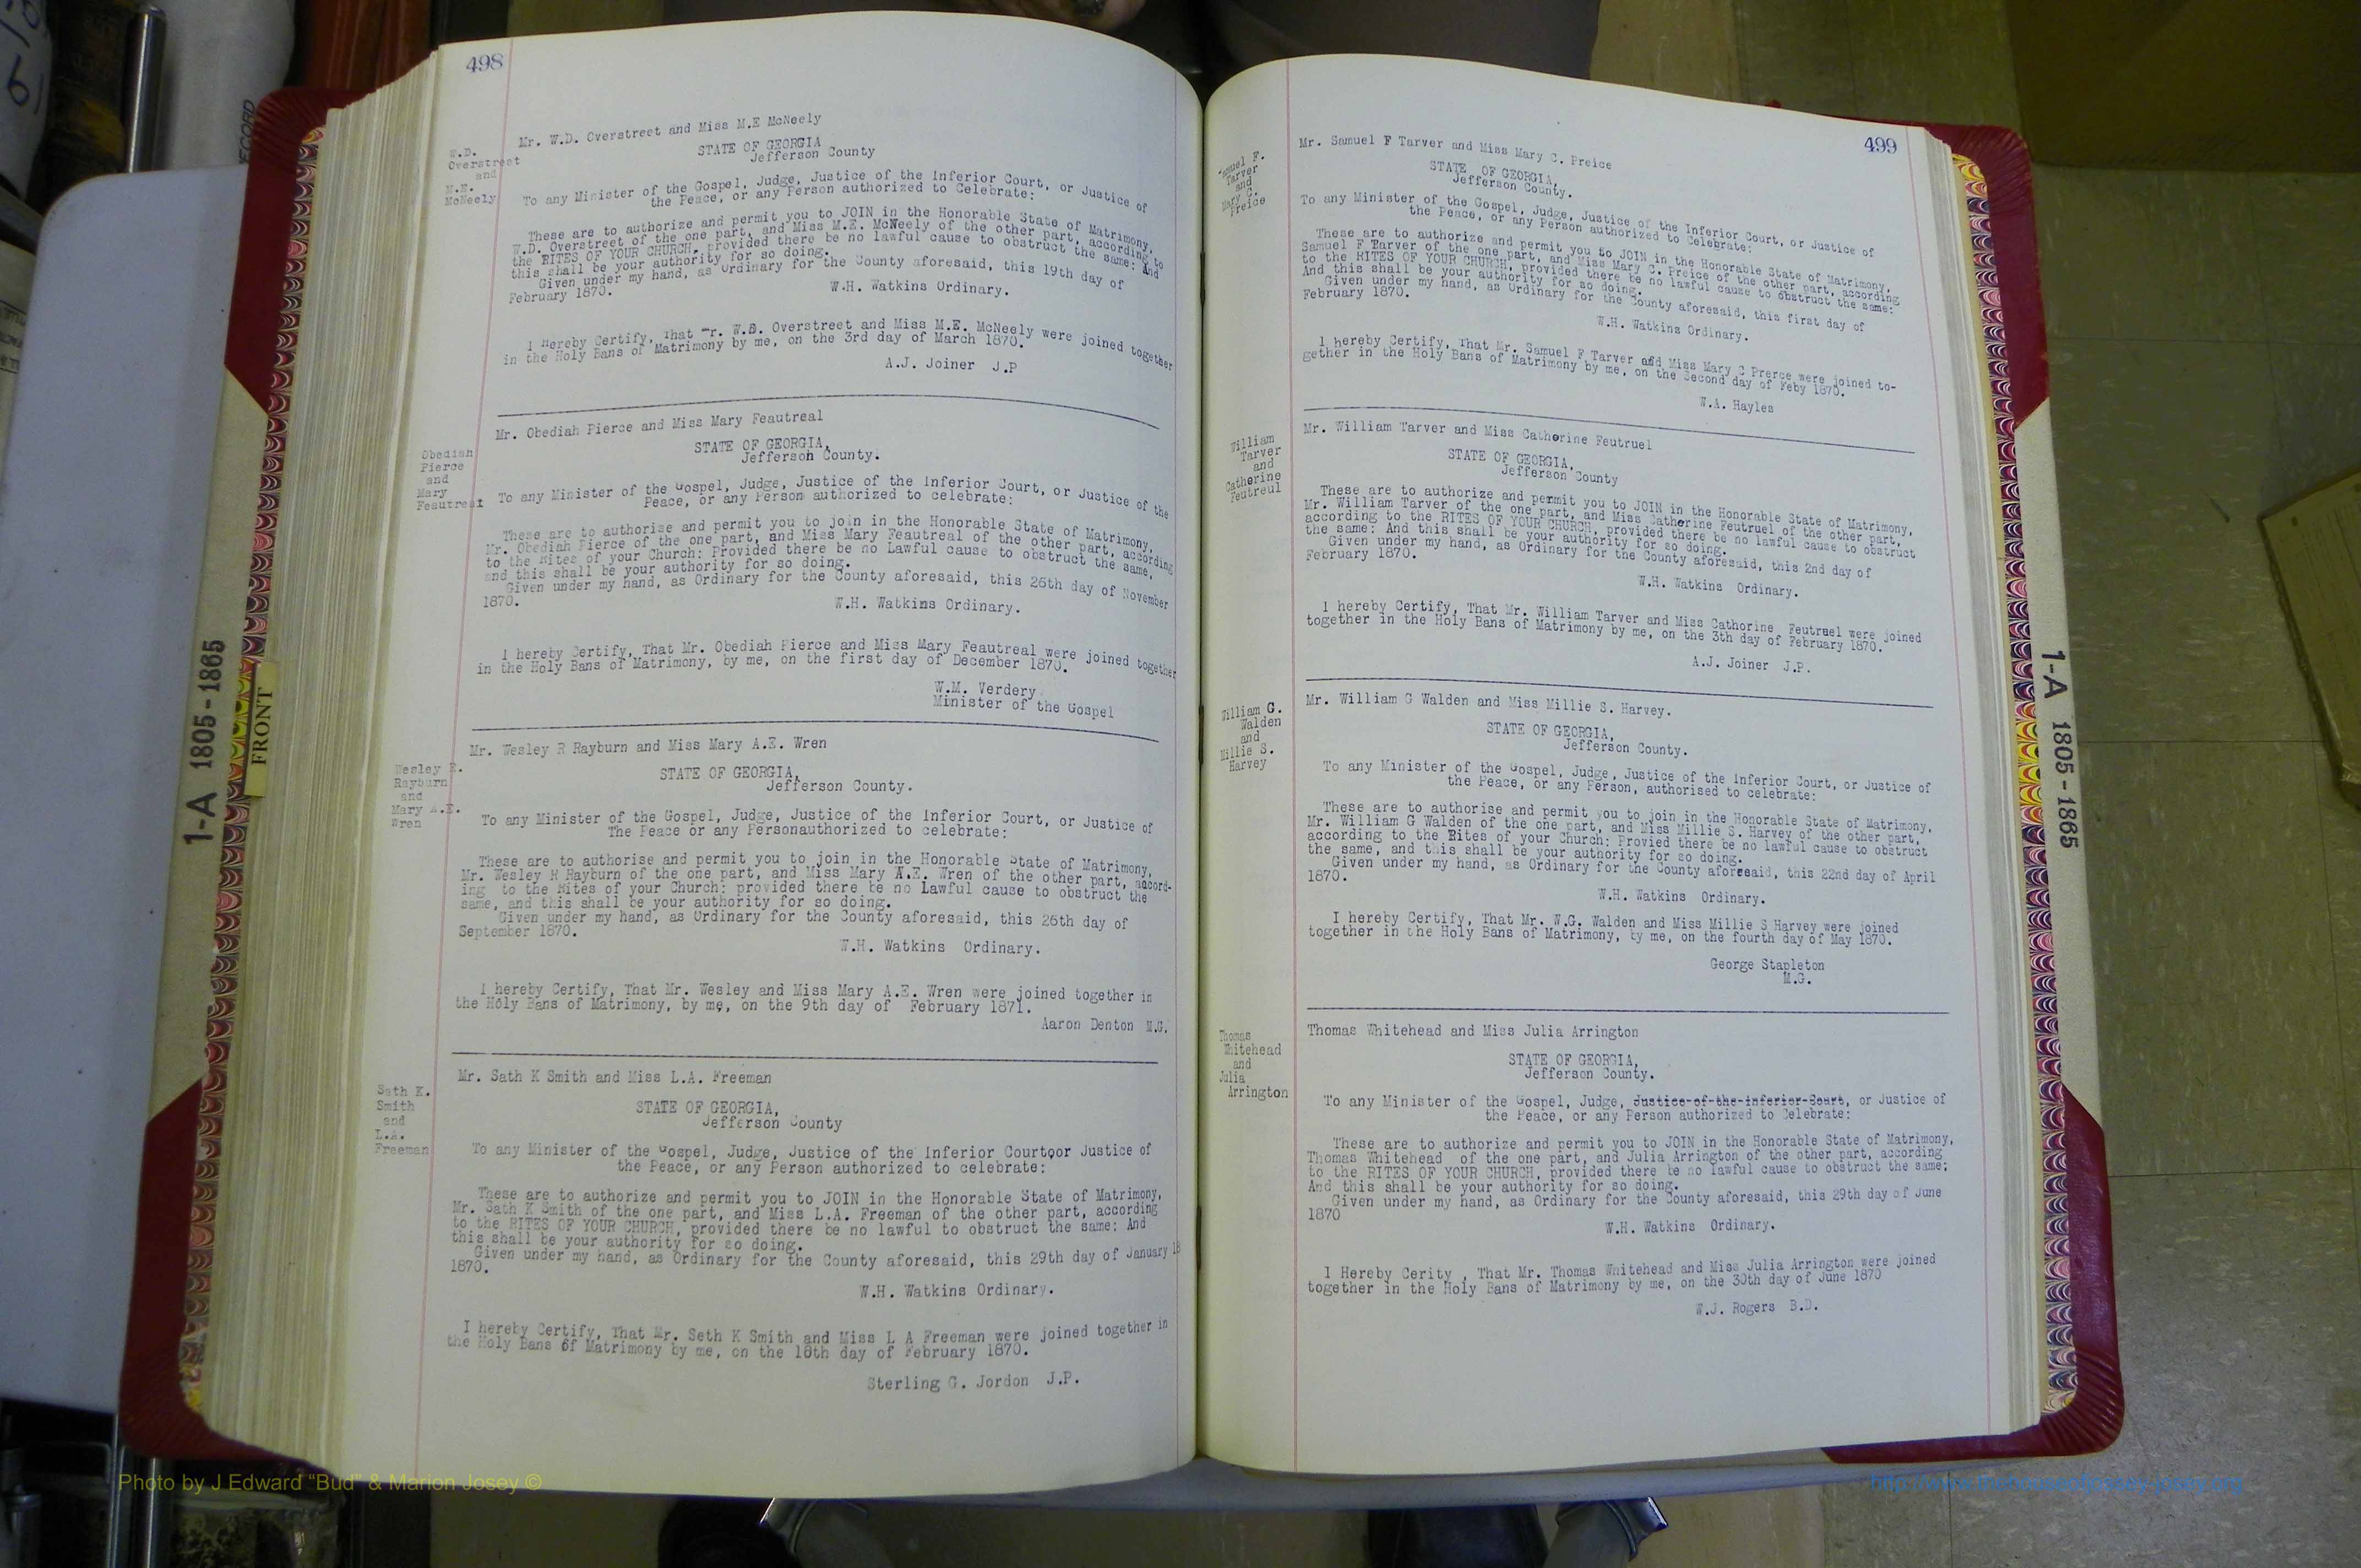 498
Mr. W.D. Overstreet and Miss M.E McNeely
W.D.
Overstreet
and
M.E.
McNeely
STATE OF GEORGIA
Jefferson County
To any Minister of the Gospel, Judge, Justice of the Inferior Court, or Justice of
the Peace, or any Person authorized to Celebrate:
These are to authorize and permit you to JOIN in the Honorable State of Matrimony,
W.D. Overstreet of the one part, and Miss M.E. McNeely of the other part, according to
the RITES OF YOUR CHURCH, provided there be no lawful cause to obstruct the same: And
this shall be your authority for so doing.
Given under my hand, as Ordinary for the County aforesaid, this 19th day of
February 1870.
W.H. Watkins Ordinary.
I Hereby Certify, That Mr. W.D. Overstreet and Miss M.E. McNeely were joined together
in the Holy Bans of Matrimony by me, on the 3rd day of March 1870.
A.J. Joiner J.P
Mr. Obediah Pierce and Miss Mary Feautreal
Obediah
Pierce
and
Mary
Feautreal
STATE OF GEORGIA,
Jefferson County.
To any Minister of the Gospel, Judge, Justice of the Inferior Court, or Justice of the
Peace, or any Person authorized to celebrate:
These are to authorise and permit you to join in the Honorable State of Matrimony,
Mr. Obediah Pierce of the one part, and Miss Mary Feautreal of the other part, according
to the Rites of your Church: Provided there be no Lawful cause to obstruct the same,
and this shall be your authority for so doing.
Given under my hand, as Ordinary for the County aforesaid, this 26th day of November
1870.
W.H. Watkins Ordinary.
I hereby Certify, That Mr. Obediah Pierce and Miss Mary Feautreal were joined together
in the Holy Bans of Matrimony, by me, on the first day of December 1870.
W.M. Verdery
Minister of the Gospel
Mr. Wesley R Rayburn and Miss Mary A.E. Wren
Wesley R.
Rayburn
and
Mary A.E.
Wren
STATE OF GEORGIA,
Jefferson County.
To any Minister of the Gospel, Judge, Justice of the Inferior Court, or Justice of
The Peace or any Personauthorized to celebrate:
These are to authorise and permit you to join in the Honorable State of Matrimony,
Mr. Wesley R Rayburn of the one part, and Miss Mary A.E. Wren of the other part, accord-
ing to the Rites of your Church: provided there be no Lawful cause to obstruct the
same, and this shall be your authority for so doing.
Given under my hand, as Ordinary for the County aforesaid, this 26th day of
September 1870.
W.H. Watkins Ordinary.
I hereby Certify, That Mr. Wesley and Miss Mary A.E. Wren were joined together in
the Holy Bans of Matrimony, by me, on the 9th day of February 1871.
Aaron Denton M.G.
Mr. Sath K Smith and Miss L.A. Freeman
Sath K.
Smith
and
L.A.
Freeman
STATE OF GEORGIA,
Jefferson County
To any Minister of the Gospel, Judge, Justice of the Inferior Courtoor Justice of
the Peace, or any Person authorized to celebrate:
These are to authorize and permit you to JOIN in the Honorable State of Matrimony,
Mr. Sath K Smith of the one part, and Miss L.A. Freeman of the other part, according
to the RITES OF YOUR CHURCH, provided there be no lawful to obstruct the same: And
this shall be your authority for so doing.
Given under my hand, as Ordinary for the County aforesaid, this 29th day of January 18
1870.
W.H. Watkins Ordinary.
I hereby Certify, That Mr. Seth K Smith and Miss L A Freeman were joined together in
the Holy Bans of Matrimony by me, on the 18th day of February 1870.
Sterling G. Jordon J.P.
499
Mr. Samuel F Tarver and Miss Mary C. Preice
Samuel F.
Tarver
and
Mary C.
Preice
STATE OF GEORGIA,
Jefferson County.
To any Minister of the Gospel, Judge, Justice of the Inferior Court, or Justice of
the Peace, or any Person authorized to Celebrate:
These are to authorize and permit you to JOIN in the Honorable State of Matrimony,
Samuel F Tarver of the one part, and Miss Mary C. Preice of the other part, according
to the RITES OF YOUR CHURCH, provided there be no lawful cause to obstruct the same:
And this shall be your authority for so doing.
Given under my hand, as Ordinary for the County aforesaid, this first day of
February 1870.
W.H. Watkins Ordinary.
I hereby Certify, That Mr. Samuel F Tarver and Miss Mary C Prerce were joined to-
gether in the Holy Bans of Matrimony by me, on the Second day of Feby 1870.
W.A. Hayles
Mr. William Tarver and Miss Catherine Feutruel
William
Tarver
and
Catherine
Feutreul
STATE OF GEORGIA,
Jefferson County
These are to authorize and permit you to JOIN in the Honorable State of Matrimony,
Mr. William Tarver of the one part, and Miss Catherine Feutruel of the other part,
according to the RITES OF YOUR CHURCH, provided there be no lawful cause to obstruct
the same: And this shall be your authority for so doing.
Given under my hand, as Ordinary for the County aforesaid, this 2nd day of
February 1870.
W.H. Watkins Ordinary.
I hereby Certify, That Mr. William Tarver and Miss Cathorine Feutruel were joined
together in the Holy Bans of Matrimony by me, on the 3th day of February 1870.
A.J. Joiner J.P.
Mr. William G Walden and Miss Millie S. Harvey.
William G.
Walden
and
Millie S.
Harvey
STATE OF GEORGIA,
Jefferson County.
To any Minister of the Gospel, Judge, Justice of the Inferior Court, or Justice of
the Peace, or any Person, authorised to celebrate:
These are to authorise and permit you to join in the Honorable State of Matrimony,
Mr. William G Walden of the one part, and Miss Millie S. Harvey of the other part,
according to the Rites of your Church: Provied there be no lawful cause to obstruct
the same, and this shall be your authority for so doing.
Given under my hand, as Ordinary for the County aforesaid, this 22nd day of April
1870.
W.H. Watkins Ordinary.
I hereby Certify, That Mr. W.G. Walden and Miss Millie S Harvey were joined
together in the Holy Bans of Matrimony, by me, on the fourth day of May 1870.
George Stapleton
M.G.
Thomas Whitehead and Miss Julia Arrington
Thomas
Whitehead
and
Julia
Arrington
STATE OF GEORGIA,
Jefferson County.
To any Minister of the Gospel, Judge, Justice-of-the-inferior-Court, or Justice of
the Peace, or any Person authorized to Celebrate:
These are to authorize and permit you to JOIN in the Honorable State of Matrimony,
Thomas Whitehead of the one part, and Julia Arrington of the other part, according
to the RITES OF YOUR CHURCH, provided there be no lawful cause to obstruct the same;
And this shall be your authority for so doing.
Given under my hand, as Ordinary for the County aforesaid, this 29th day of June
1870
W.H. Watkins Ordinary.
I Hereby Cerity , That Mr. Thomas Whitehead and Miss Julia Arrington were joined
together in the Holy Bans of Matrimony by me, on the 30th day of June 1870
W.J. Rogers B.D.
1-A 1805-1865
FRONT
1-A 1805-1865
Photo by J Edward "Bud" & Marion Josey ©
http://www.thehouseofjossey-josey.org